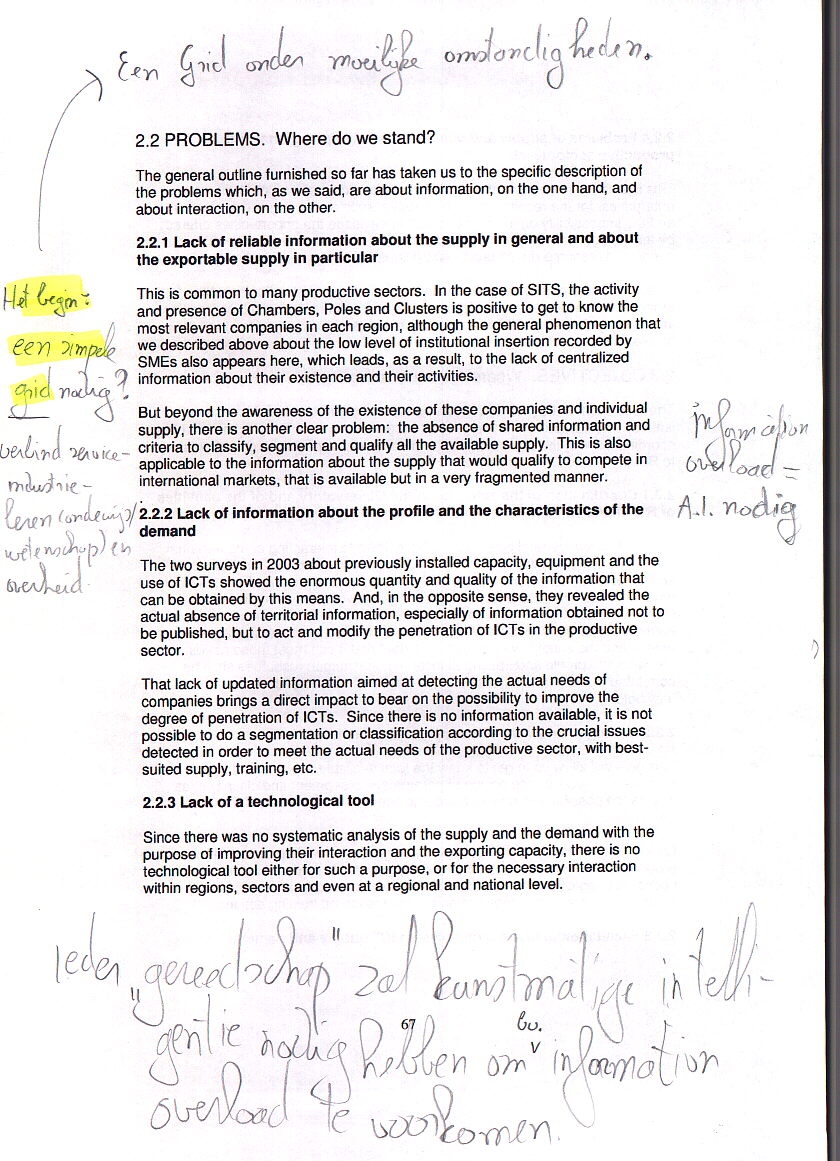 Een Grid onder moeilijke omstandigheden.
2.2 PROBLEMS.  Where do we stand?
The general outline furnished so far has taken us to the specific description of
the problems which, as we said, are about information, on the one hand, and
about interaction, on the other.
2.2.1 Lack of reliable information about the supply in general and about
the exportable supply in particular
Het begin:
een simpele
grid nodig?
verbind service-
industrie-
leren (onderwijs/
wetenschap) en
overheid.
This is common to many productive sectors.  In the case of SITS, the activity
and presence of Chambers, Poles and Clusters is positive to get to know the
most relevant companies in each region, although the general phenomenon that
we described above about the low level of institutional insertion recorded by
SMEs also appears here, which leads, as a result, to the lack of centralized
information about their existence and their activities.
But beyond the awareness of the existence of these companies and individual
supply, there is another clear problem:  the absence of shared information and
criteria to classify, segment and qualify all the available supply.  This is also
applicable to the information about the supply that would qualify to compete in
international markets, that is available but in a very fragmented manner.
information
overload =
A.I. nodig
2.2.2 Lack of information about the profile and the characteristics of the
demand
The two surveys in 2003 about previously installed capacity, equipment and the
use of ICTs showed the enormous quantity and quality of the information that
can be obtained by this means.  And, in the opposite sense, they revealed the
actual absence of territorial information, especially of information obtained not to
be published, but to act and modify the penetration of ICTs in the productive
sector.
That lack of updated information aimed at detecting the actual needs of
companies brings a direct impact to bear on the possibility to improve the
degree of penetration of ICTs.  Since there is no information available, it is not
possible to do a segmentation or classification according to the crucial issues
detected in order to meet the actual needs of the productive sector, with best-
suited supply, training, etc.
2.2.3 Lack of a technological tool
Since there was no systematic analysis of the supply and the demand with the
purpose of improving their interaction and the exporting capacity, there is no
technological tool either for such a purpose, or for the necessary interaction
within regions, sectors and even at a regional and national level.
Ieder „gereedschap" zal kunstmatige intelli-
67
gentie nodig hebben om bv. information
overload te voorkomen.